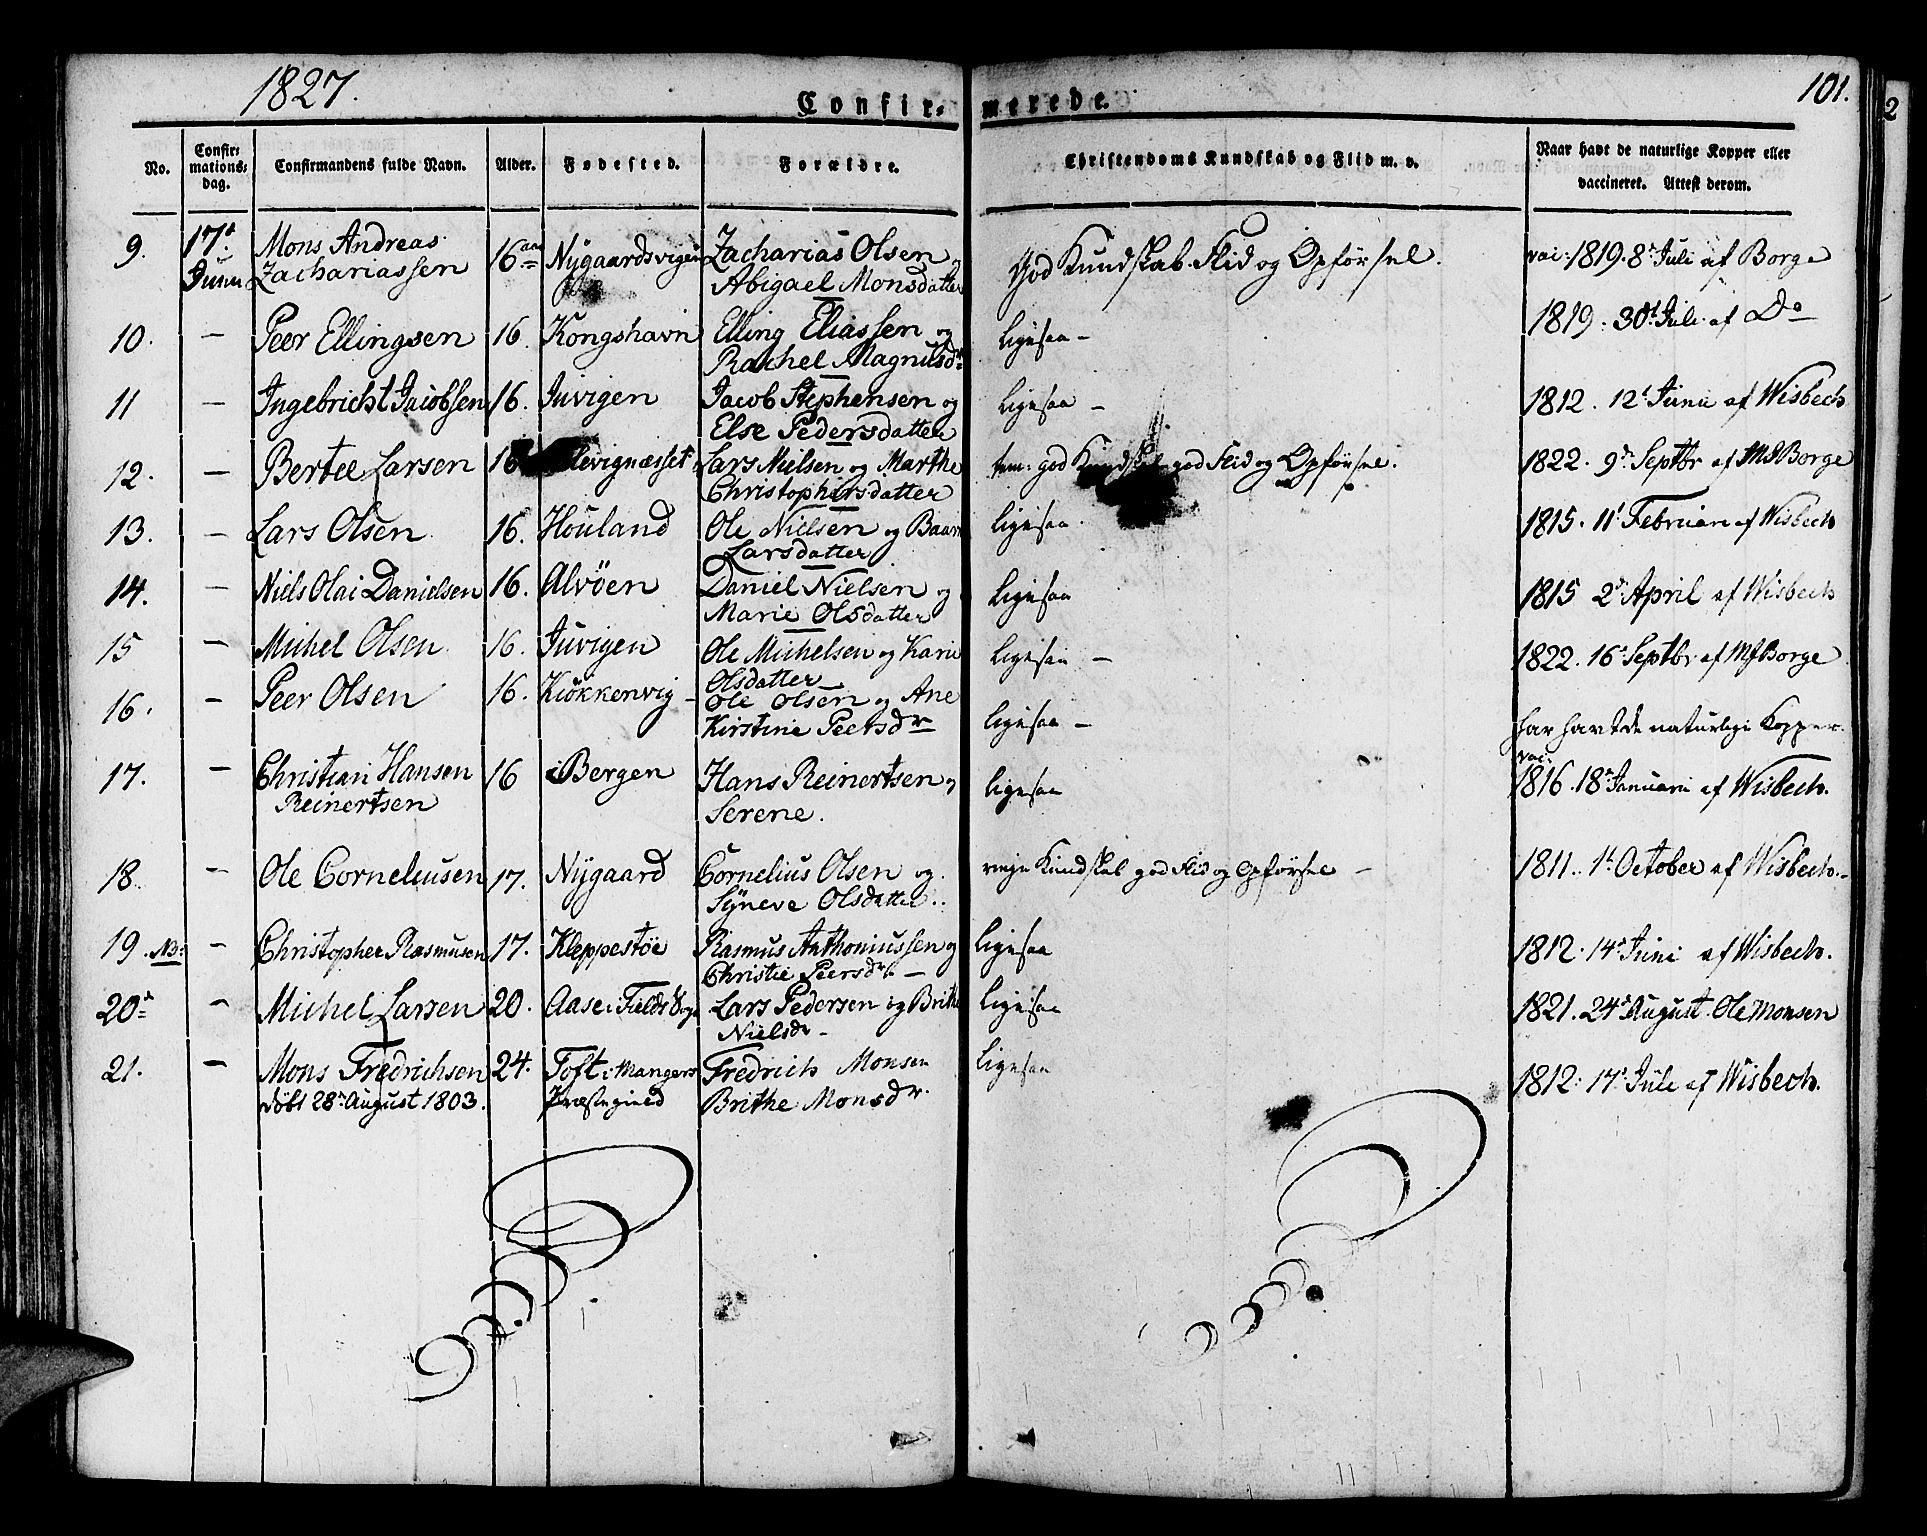 1827.
Confir-
merede.
101.
2
No.
Confir-
mations-
dag.
Confirmandens fulde Navn.
Alder.
Fødested.
Forældre.
Christendoms Kundskab og Flid m. v.
Naar havt de naturlige Kopper eller
vaccineret. Attest derom.
9. 17de Mons Andreas 16 aar Nygaardsvigen Zacharias Olsen og God Kundskab Flid og Opførsel. vac: 1819. 8de Juli af Borge
Juni Zachariassen Abigael Monsdatter
10. — Peer Ellingsen 16. Kongshavn Elling Eliassen og ligesaa — 1819. 30t Juli af Do
Rachel Magnusdr
11 — Ingebricht Jacobsen 16. Juvigen Jacob Stephensen og ligesaa — 1812. 12t Juni af Wisbech
Else Pedersdatter
12. — Bertel Larsen Lars Nielsen og Marthe tem: god Kundskab god Flid og Opførsel. 1822. 9de Septbr af MJBorge
Christophersdatter
13. — Lars Olsen 16. Houland Ole Nielsen og ligesaa. 1815. 11t Februari af Wisbech
Larsdatter
14. — Niels Olai Danielsen 16. Alvöen Daniel Nielsen og ligesaa 1815 2de April af Wisbech
Marie Olsdatter
15 — Michel Olsen 16. Juvigen Ole Michelsen og Kari ligesaa — 1822. 16t Septbr af MJBorge
Olsdatter
16. — Peer Olsen 16. Kiökkenvig — Ole Olsen og Ane ligesaa — har havt de naturlige Kopper.
Kirstine Peersdr
17. — Christian Hansen 16 i Bergen Hans Reinertsen og ligesaa vac: 1816. 18de Januari af Wisbech.
Reinertsen Serene.
18. — Ole Corneliusen 17. Nygaard Cornelius Olsen og maadelig Kundskab god Flid og Opførsel — 1811. 1t October af Wisbech.
Syneve Olsdatter.
19. NB: — Christopher Rasmusen 17. Kleppestöe Rasmus Anthoniussen og ligesaa 1812. 14de Juni af Wisbech.
Christie Peersdr. —
20de — Michel Larsen 20. Aase i Fields Sogn Lars Pedersen og Brithe ligesaa 1821. 24de August. Ole Monsen
Nielsdr —
21. — Mons Fredrichsen 24. Toft i Mangers Fredrich Monsen ligesaa 1812. 17t Juli af Wisbech.
döbt 28de August 1803. Præstegield Brithe Monsdr.